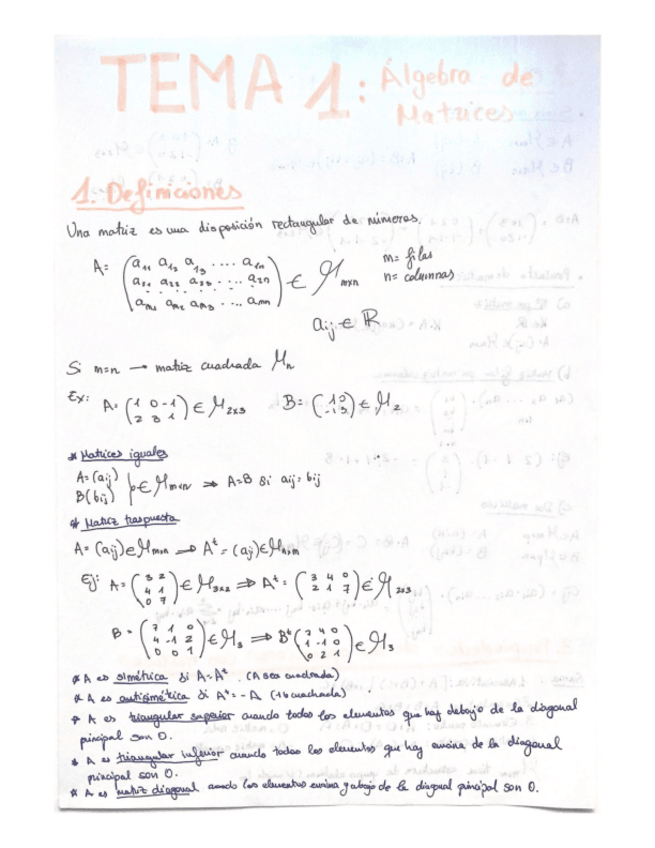 TEMA 1: Álgebra de
Matrices
1. Definiciones
Una matriz es una disposición rectangular de números.
A= (a11 a12 a13 .... a1n
a21 a22 a23 .... a2n
. . . . . . . .
am1 am2 am3 .... amn) ∈ Mmxn
m= filas
n= columnas
aij ∈ ℝ
Si m=n → matriz cuadrada Mn
Ex: A= (1 0 -1
2 3 1) ∈ M2x3 B= (1 0
-1 3) ∈ M2
* Matrices iguales
A=(aij)
B(bij) } ∈ Mmxn ⇒ A=B si aij=bij
* Matriz traspuesta
A= (aij) ∈ Mmxn ⇒ At = (aj) ∈ Mnxm
Ej: A= (3 2
4 1
0 7) ∈ M3x2 ⇒ At = (3 4 0
2 1 7) ∈ M2x3
B = (7 1 0
4 -1 2
0 0 1) ∈ M3 ⇒ Bt (7 4 0
1 -1 0
0 2 1) ∈ M3
* A es simétrica si A=At. (A sea cuadrada)
* A es antisimétrica si At = -A (A cuadrada)
* A es triangular superior cuando todos los elementos que hay debajo de la diagonal
principal son 0.
* A es triangular inferior cuando todos los elementos que hay encima de la diagonal
principal son 0.
* A es matriz diagonal cuando los elementos encima y abajo de la diagonal principal son 0.